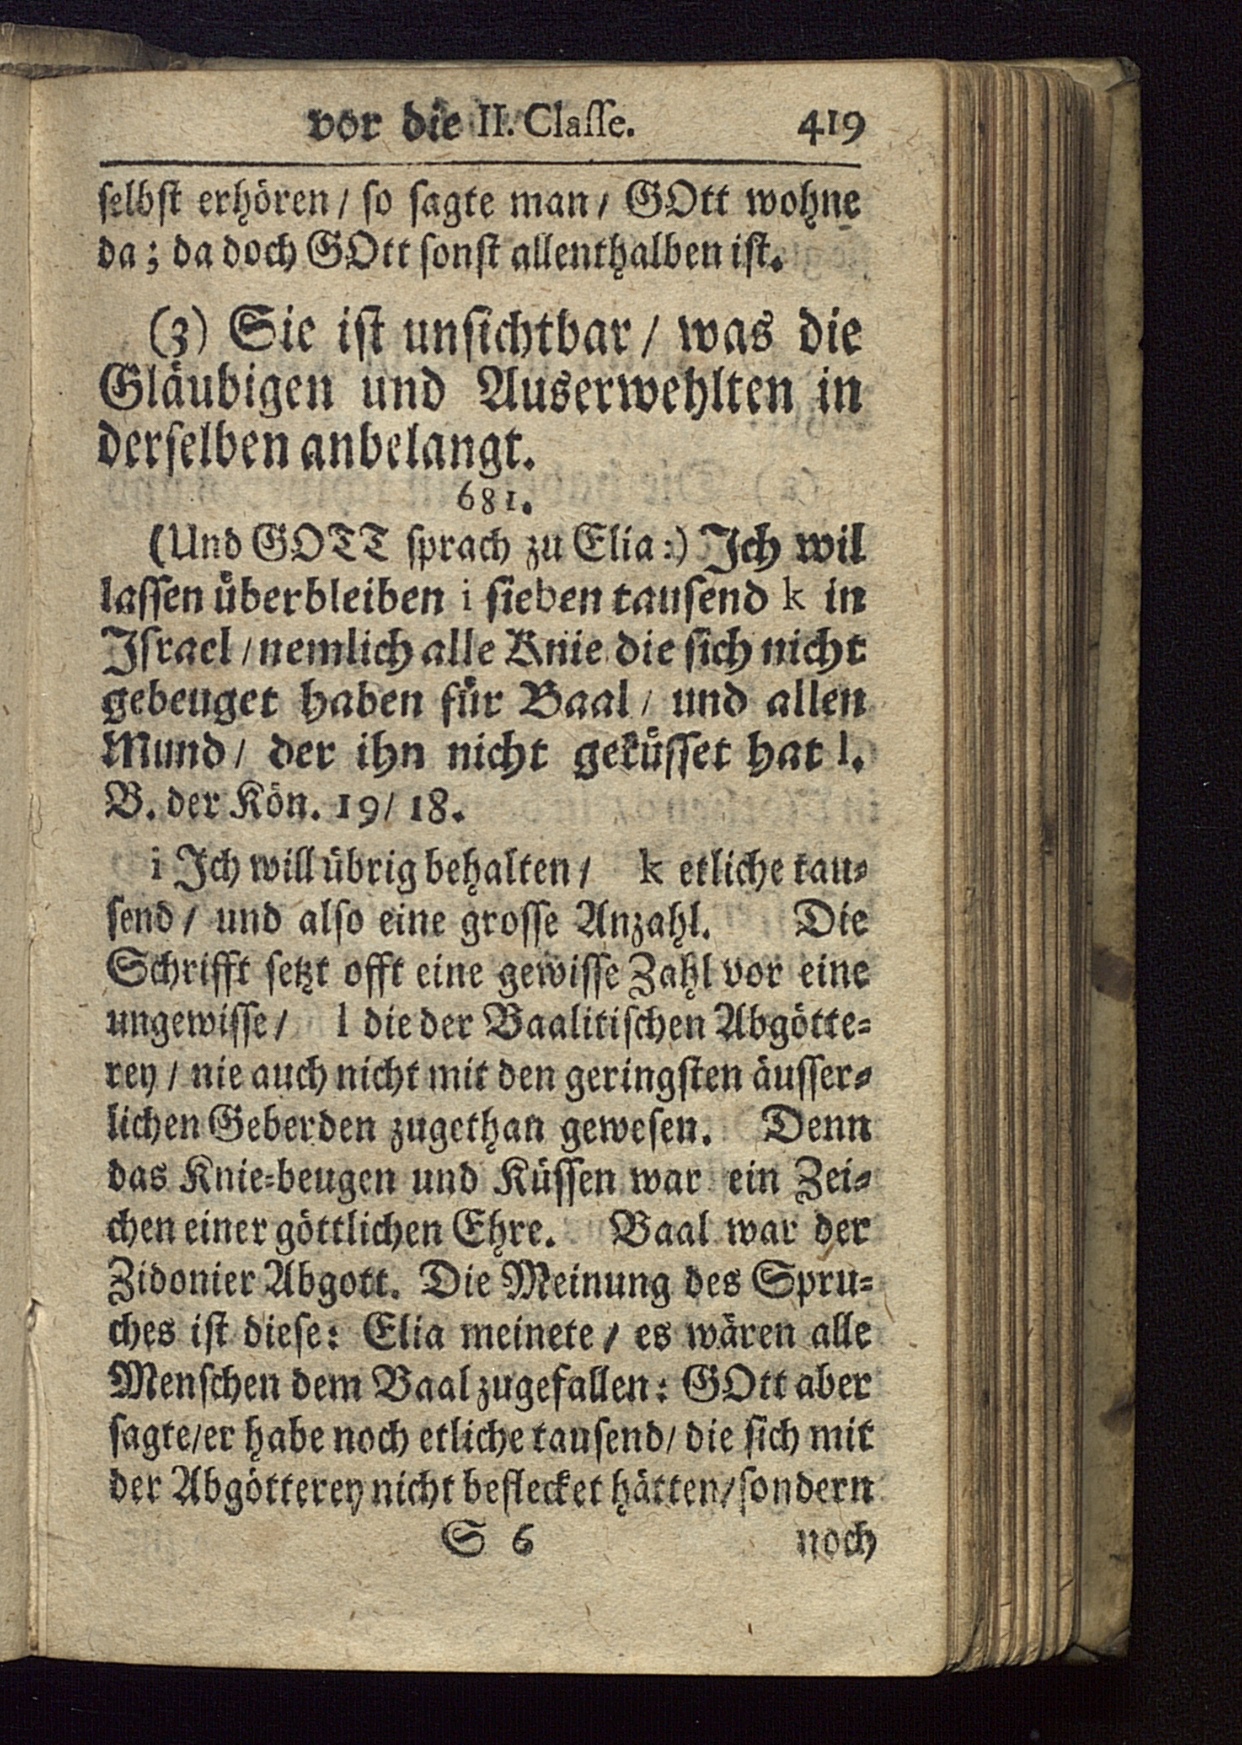 vor die II. Claſſe. 419
ſelbſt erhören / ſo ſagte man / GOtt wohne
da ; da doch GOtt ſonſt allenthalben iſt.
(3) Sie iſt unſichtbar / was die
Gläubigen und Auserwehlten in
derſelben anbelangt.
681.
(Und GOTT ſprach zu Elia:) Ich wil
laſſen überbleiben i ſieben tauſend k in
Iſrael / nemlich alle Knie die ſich nicht
gebeuget haben für Baal / und allen
Mund / der ihn nicht geküſſet hat l.
B. der Kön. 19 / 18.
i Ich will übrig behalten / k etliche tau-
ſend / und alſo eine groſſe Anzahl. Die
Schrifft ſetzt offt eine gewiſſe Zahl vor eine
ungewiſſe / l die der Baalitiſchen Abgötte-
rey / nie auch nicht mit den geringſten äuſſer-
lichen Geberden zugethan geweſen. Denn
das Knie-beugen und Küſſen war ein Zei-
chen einer göttlichen Ehre. Baal war der
Zidonier Abgott. Die Meinung des Spru-
ches iſt dieſe: Elia meinete / es wären alle
Menſchen dem Baal zugefallen: GOtt aber
ſagte/er habe noch etliche tauſend/ die ſich mit
der Abgötterey nicht beflecket hätten/ſondern
S 6 noch